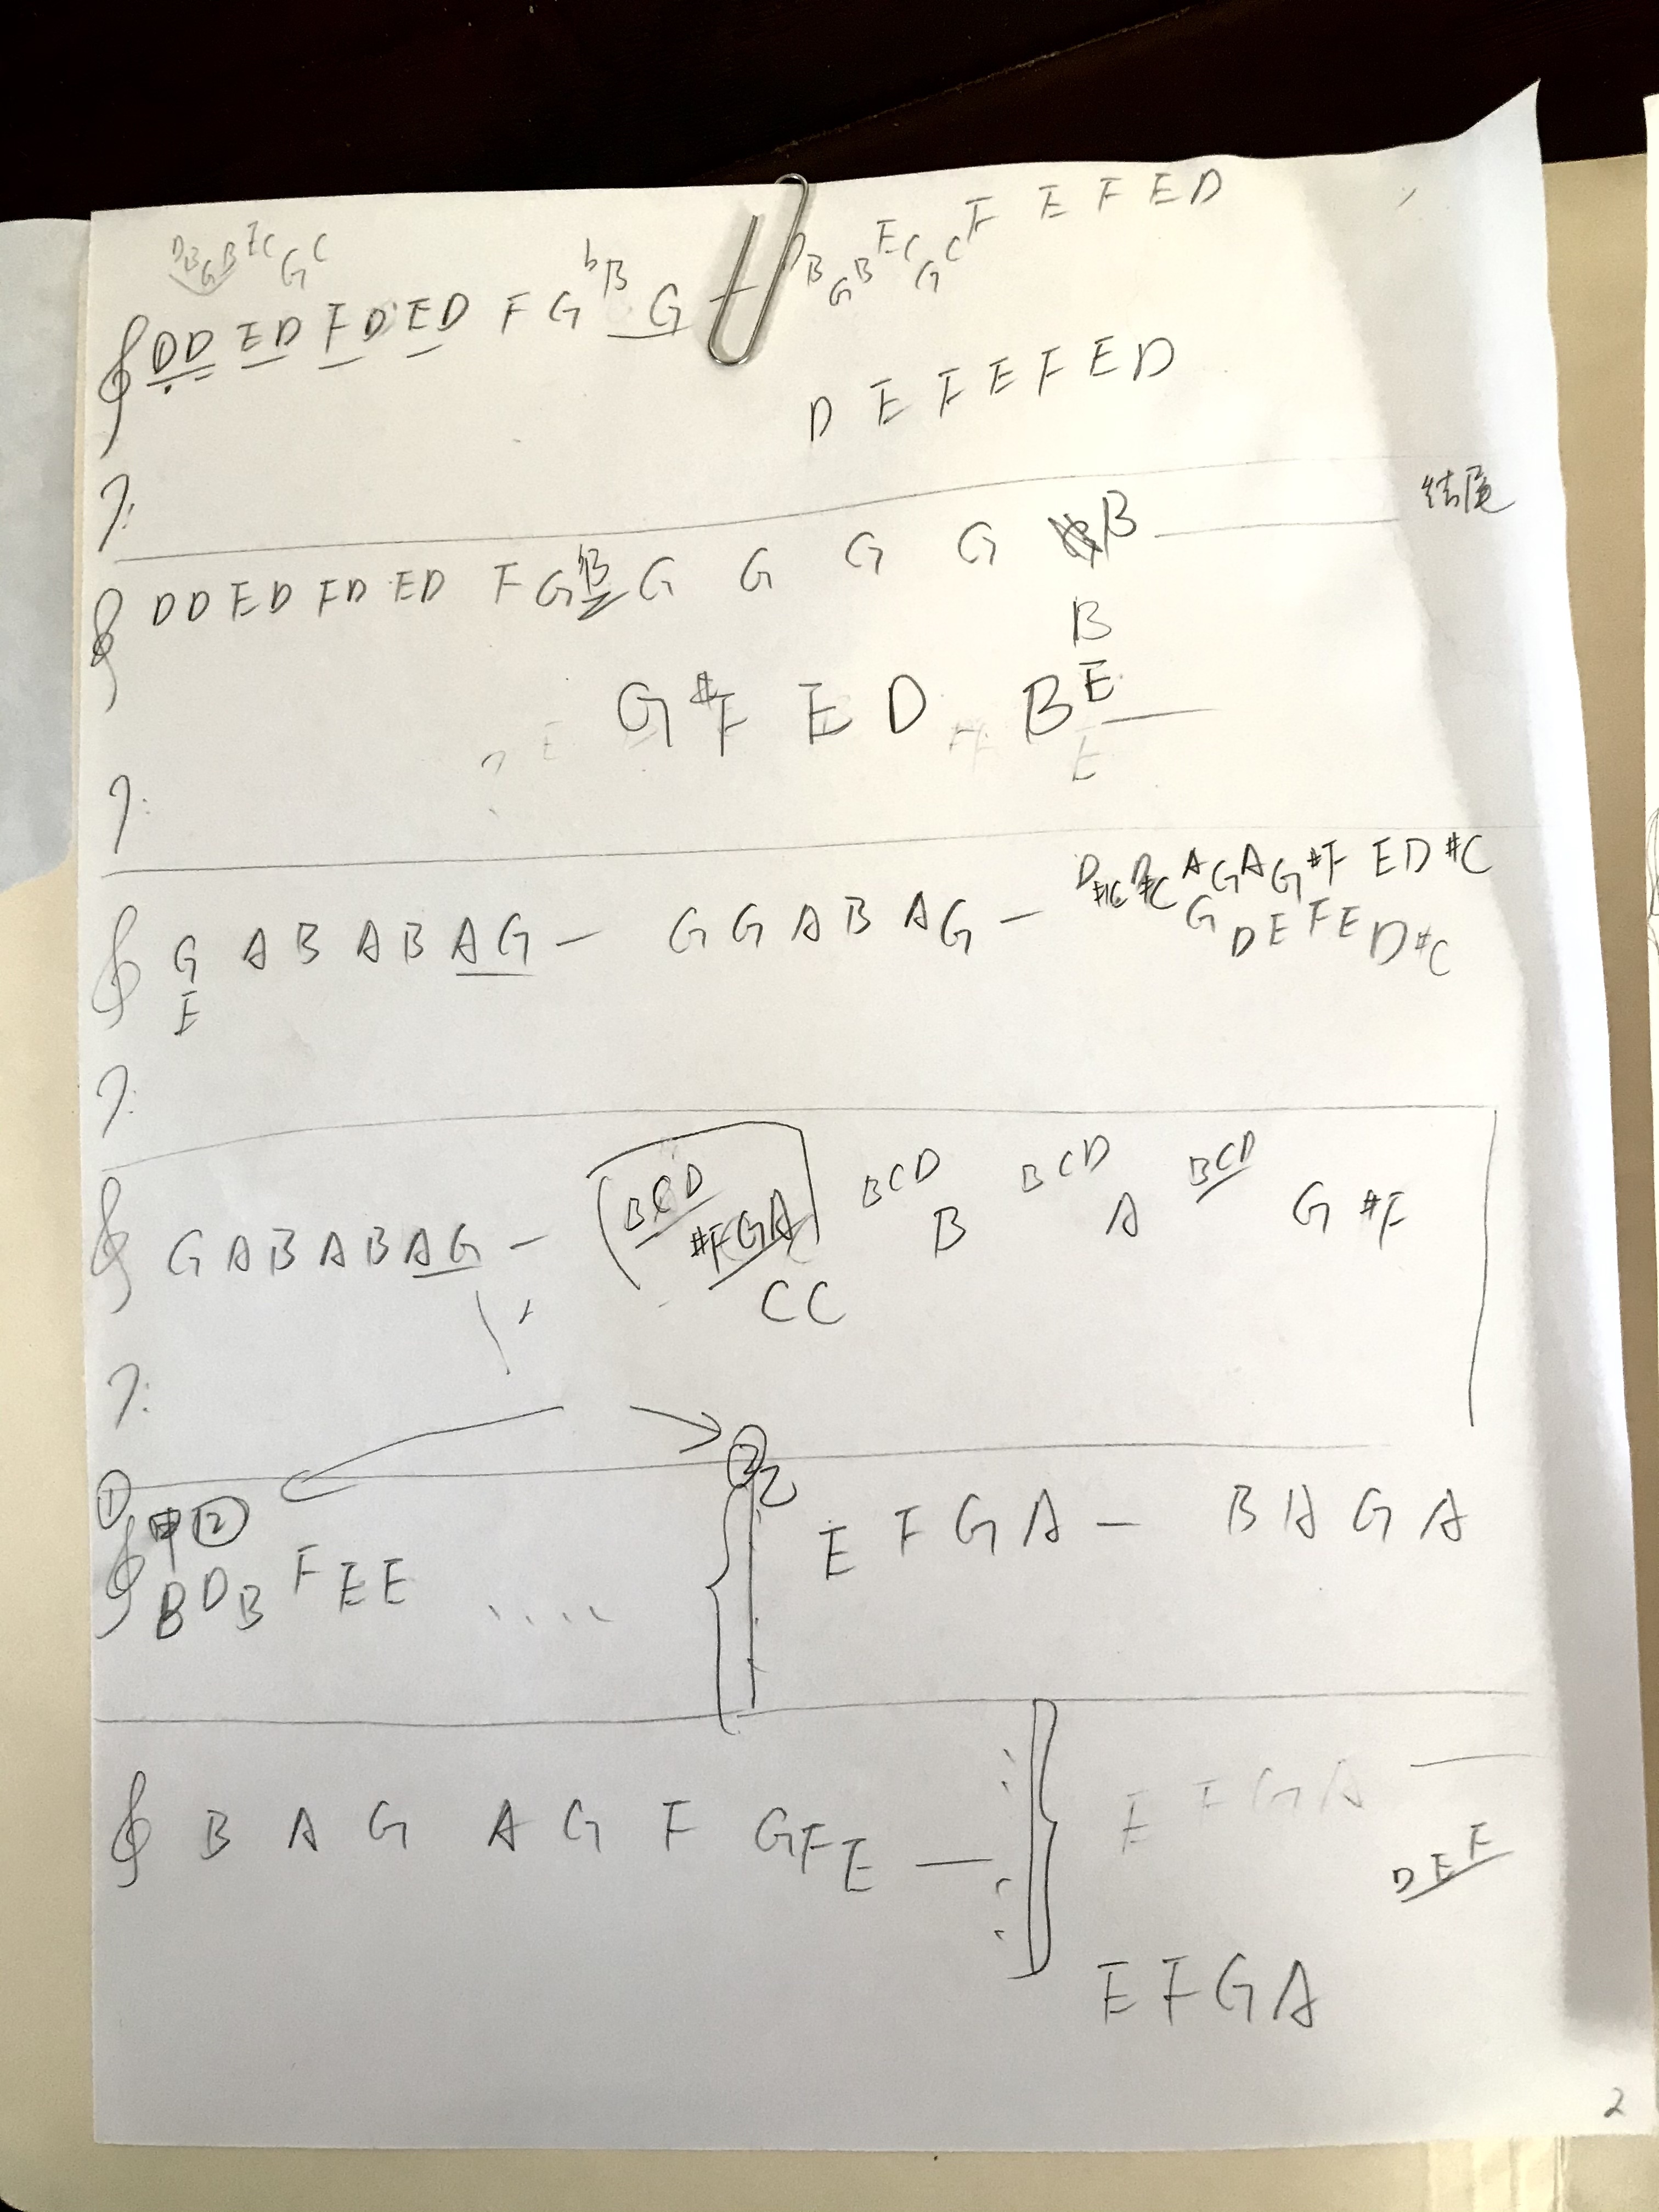 D B G B E C G C
D D E D F D E D F G bB G — D B G B E C G C F E F E D
D E F E F E D
结尾
D D E D F D E D F G bB G G G G B
B
G #F E D B E
E
G A B A B A G — G G A B A G — D #C D #C A G A G #F E D #C
E G D E F E D #C
G A B A B A G — ( B C D #F G A ) B C D B B C D A B C D G #F
C C
① ②
甲 ② 乙
B D B F E E .... E F G A — B A G A
B A G A G F G F E — E F G A —
D E F
E F G A
2